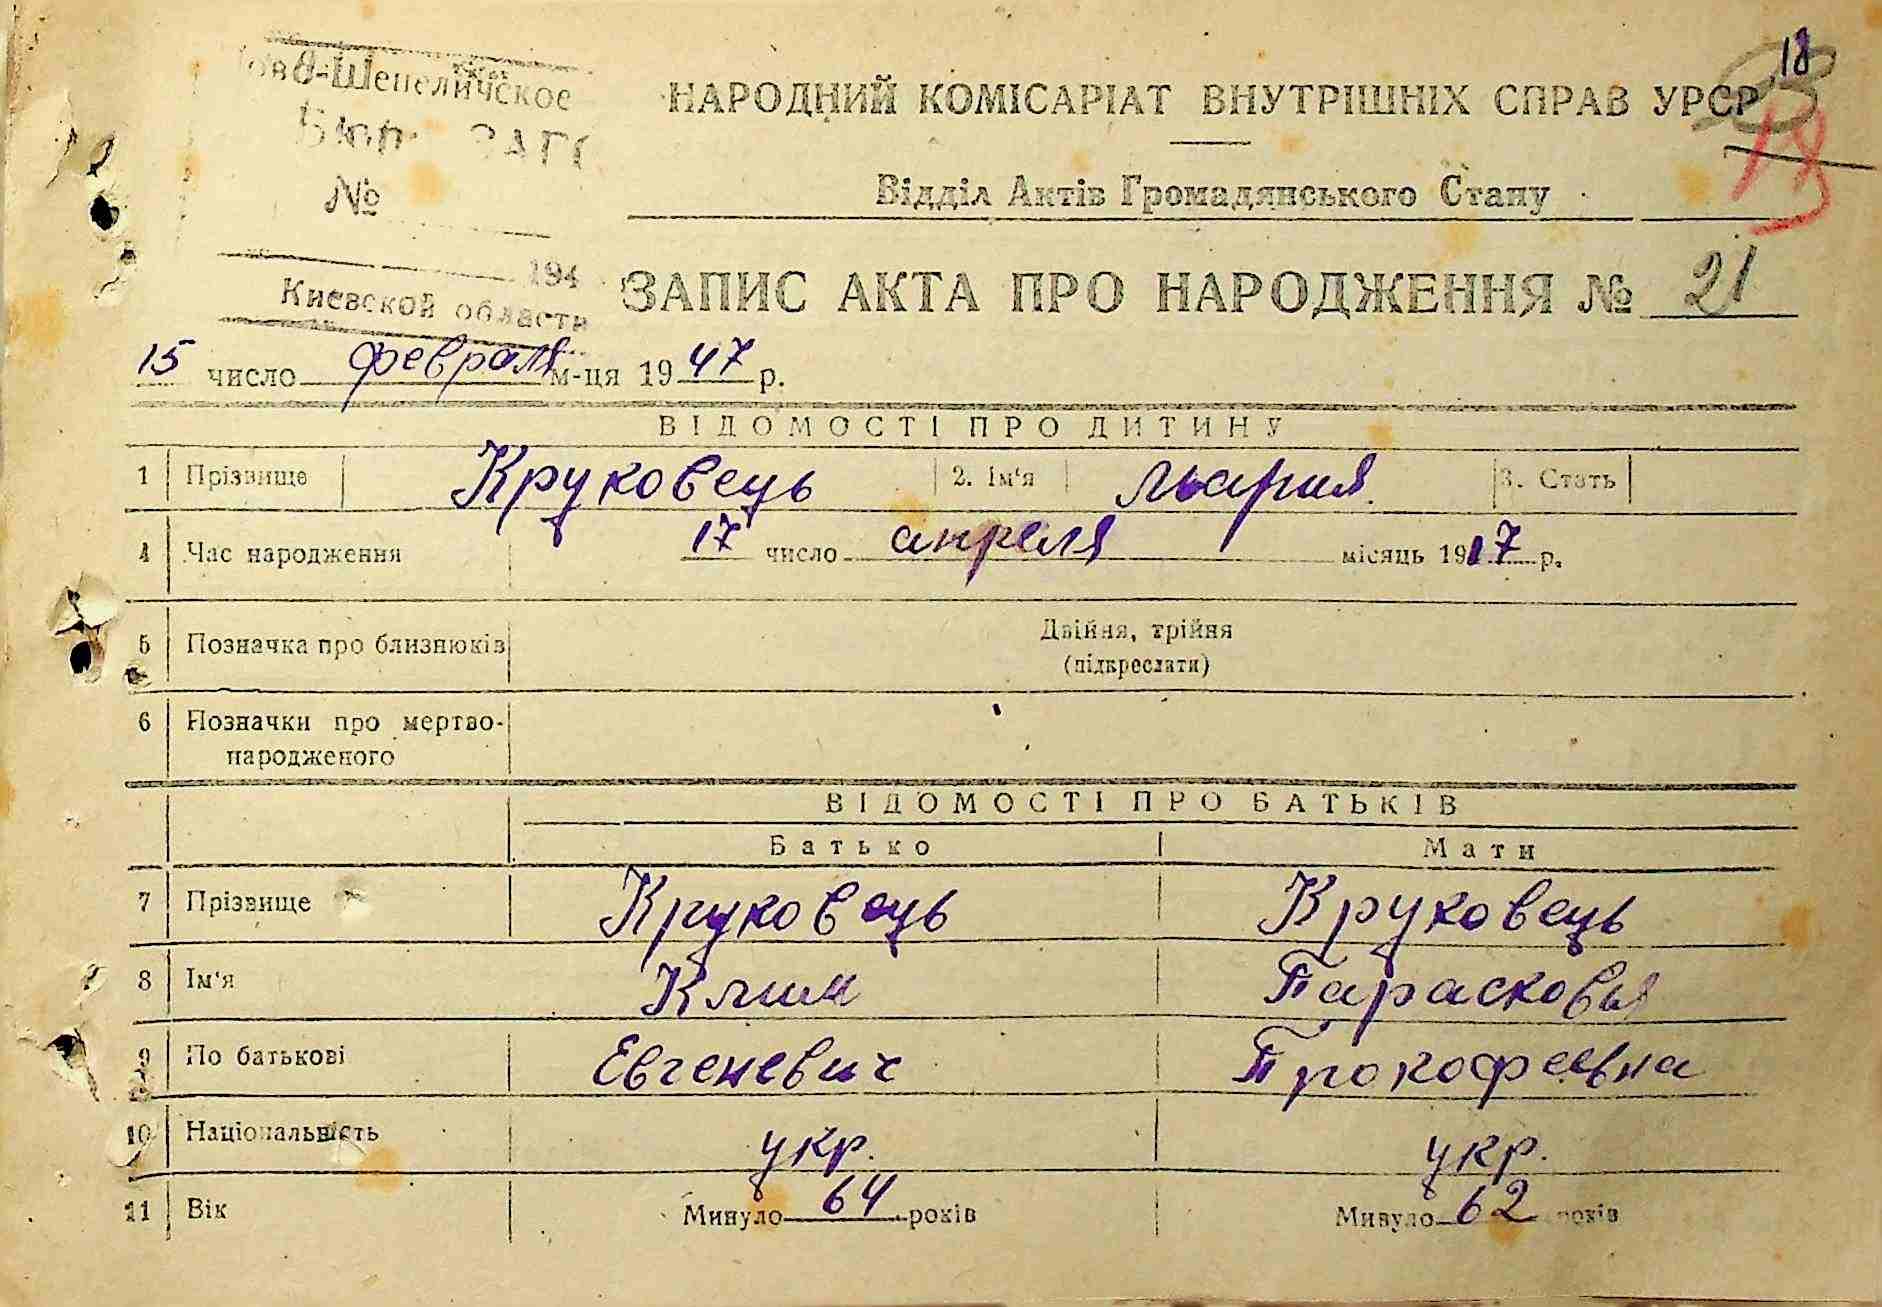 18
-Шепеличское
НАРОДНИЙ КОМІСАРІАТ ВНУТРІШНІХ СПРАВ УРСР
№
Відділ Актів Громадянського Стану
194
Киевской области
ЗАПИС АКТА ПРО НАРОДЖЕННЯ № 21
15 число февраля м-ця 1947 р.
ВІДОМОСТІ ПРО ДИТИНУ
1 Прізвище Круковець 2. Ім'я Мария 3. Стать
4 Час народження 17 число апреля місяць 1917 р.
5 Позначка про близнюків Двійня, трійня
(підкреслати)
6 Позначки про мертво-
народженого
ВІДОМОСТІ ПРО БАТЬКІВ
Батько Мати
7 Прізвище Круковець Круковець
8 Ім'я Клим Парасковья
9 По батькові Евгеневич Прокофеевна
10 Національність укр. укр.
11 Вік Минуло 64 років Минуло 62 років